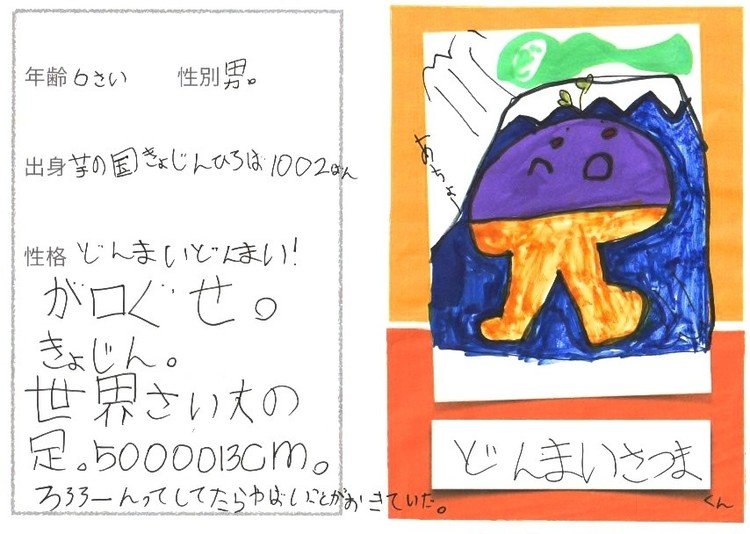 年齢 6さい 性別 男。
出身 芋の国きょじんひろば1002ばん
性格 どんまいどんまい!
が口ぐせ。
きょじん。
世界さい大の
足。5000013cm。
ろろろーんってしてたらやばいことがおきていた。
あちょー
どんまいさつま
くん